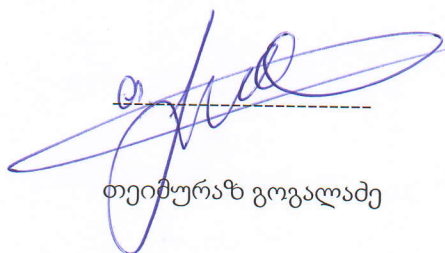 თეიმურაზ გოგალაძე